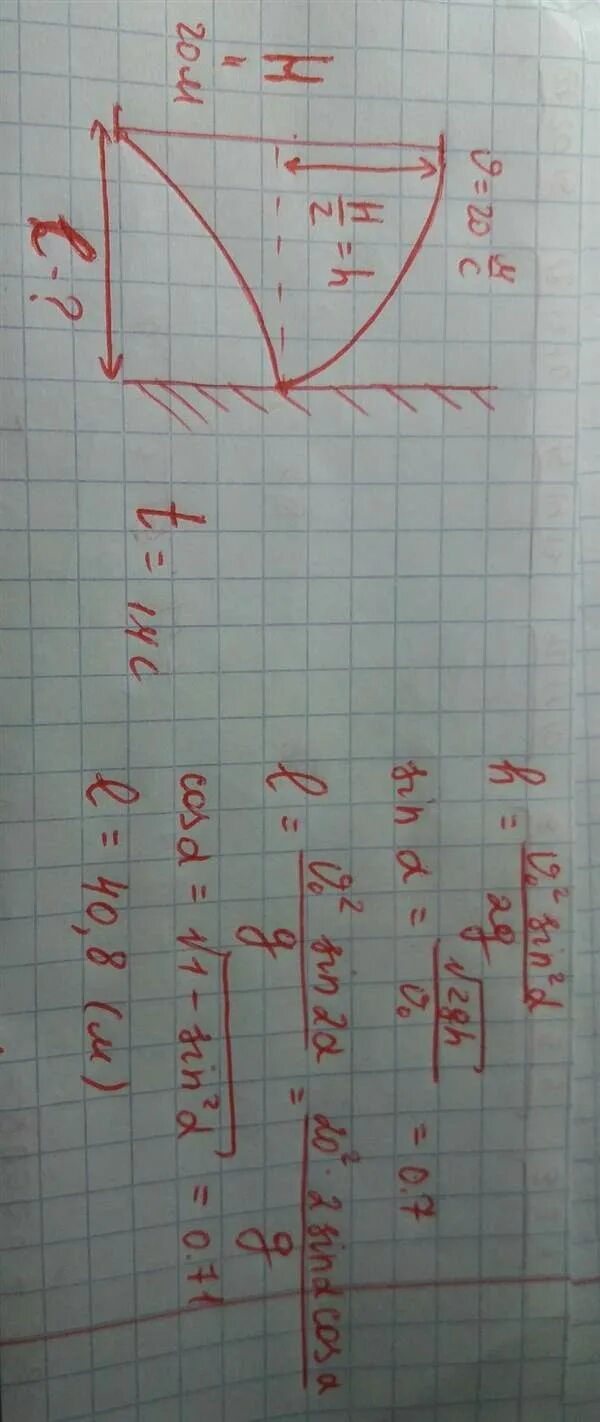 H
"
20 м
ϑ = 20 м/с
H/2 = h
l - ?
t = 1,4 с
h = ϑ₀² sin²α / 2g
sin α = √2gh / ϑ₀ = 0.7
l = ϑ₀² sin 2α / g = 20² · 2 sin α cos α / g
cos α = √1 - sin²α = 0.71
l = 40,8 (м)